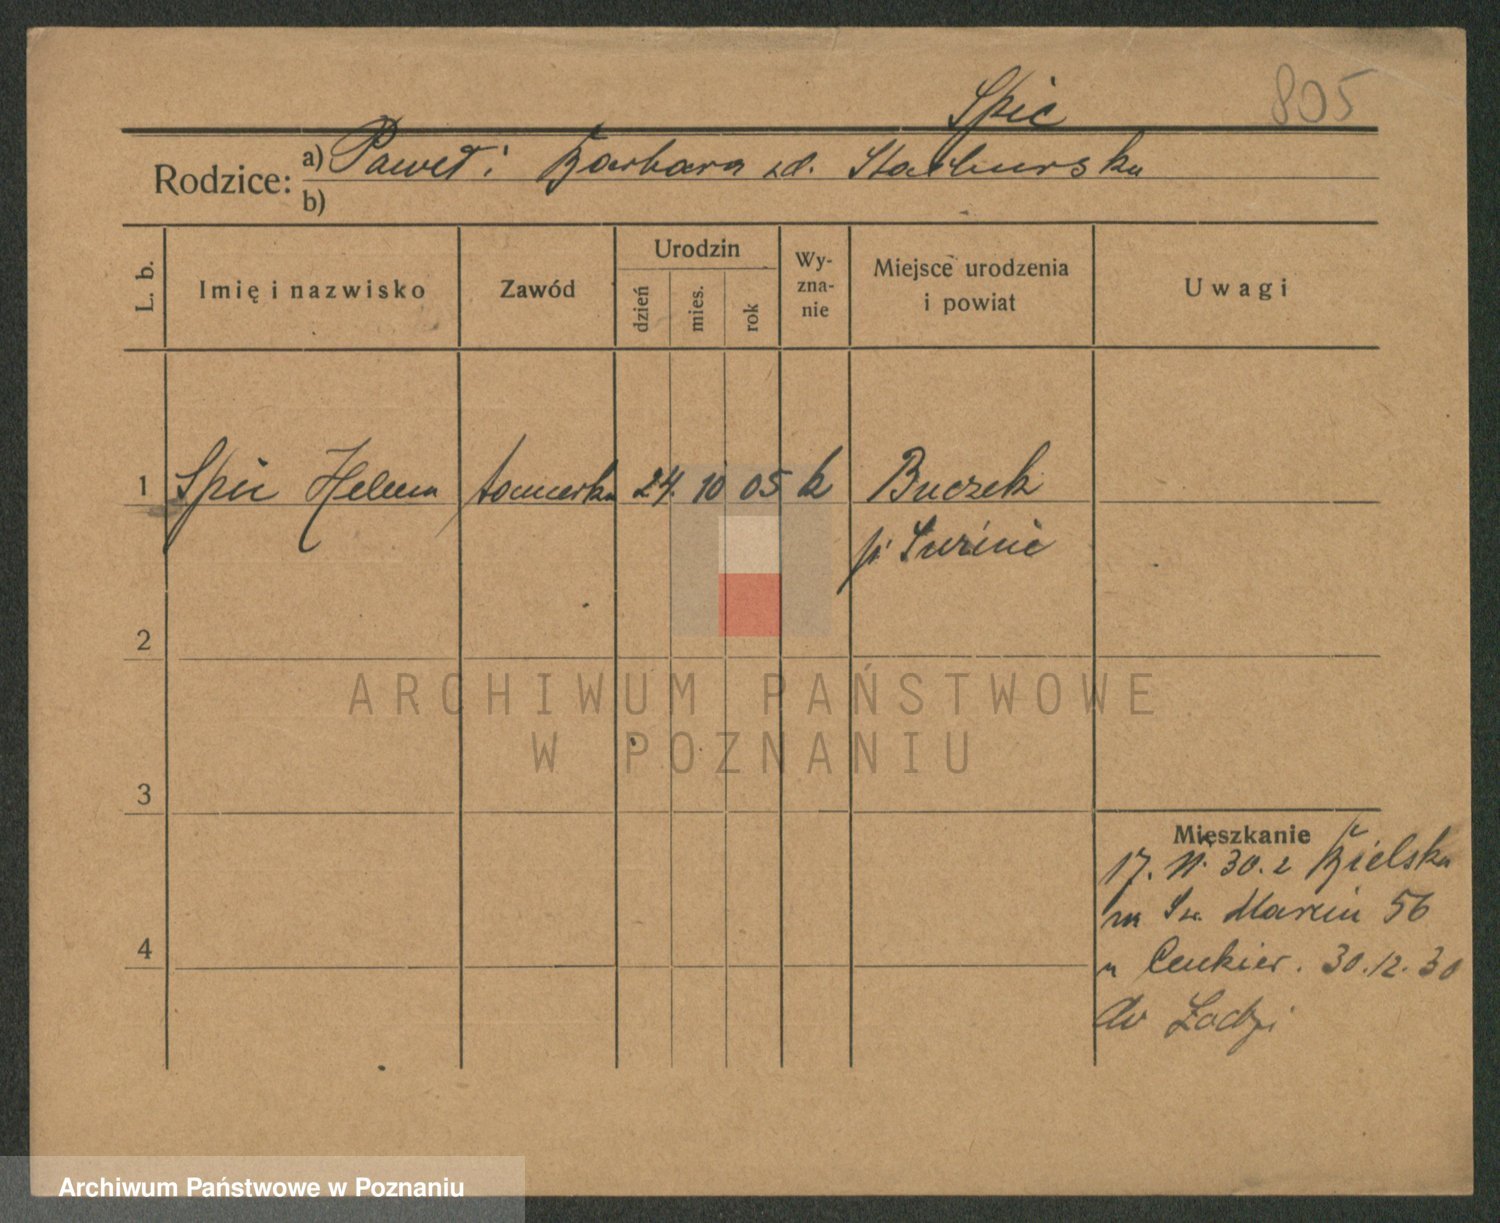 Spic
805
Rodzice: a) Paweł i Barbara zd. Stachurska
b)
L. b. Imię i nazwisko Zawód Urodzin dzień mies. rok Wy-zna-nie Miejsce urodzenia i powiat Uwagi
1 Spic Helena 24. 10 05 k Buczek
p.
2
ARCHIWUM PAŃSTWOWE
W POZNANIU
3
Mieszkanie
17. 11. 30. z Bielska
na Św. Marcin 56
u Cukier. 30.12.30
do Łodzi
4
Archiwum Państwowe w Poznaniu